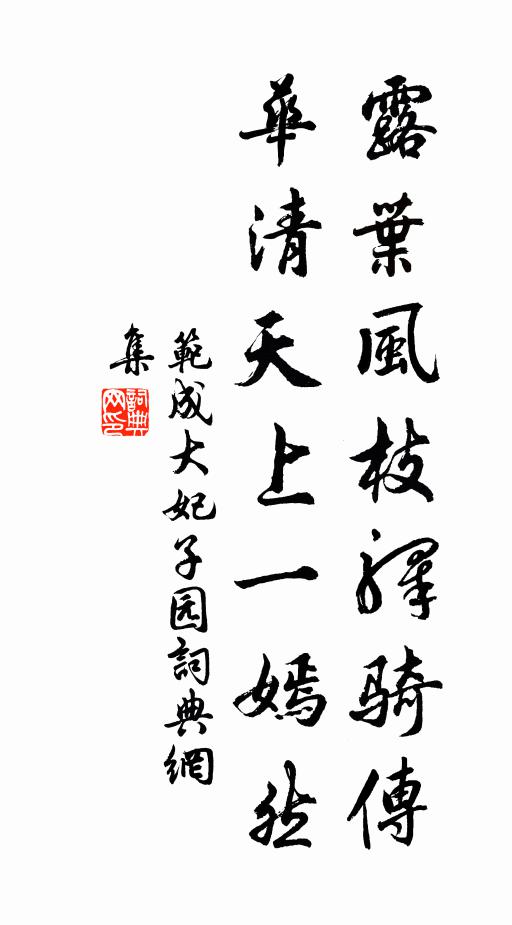 露葉風枝驛騎傳
華清天上一嫣然
範成大妃子园詞典網
集
詞典
网印